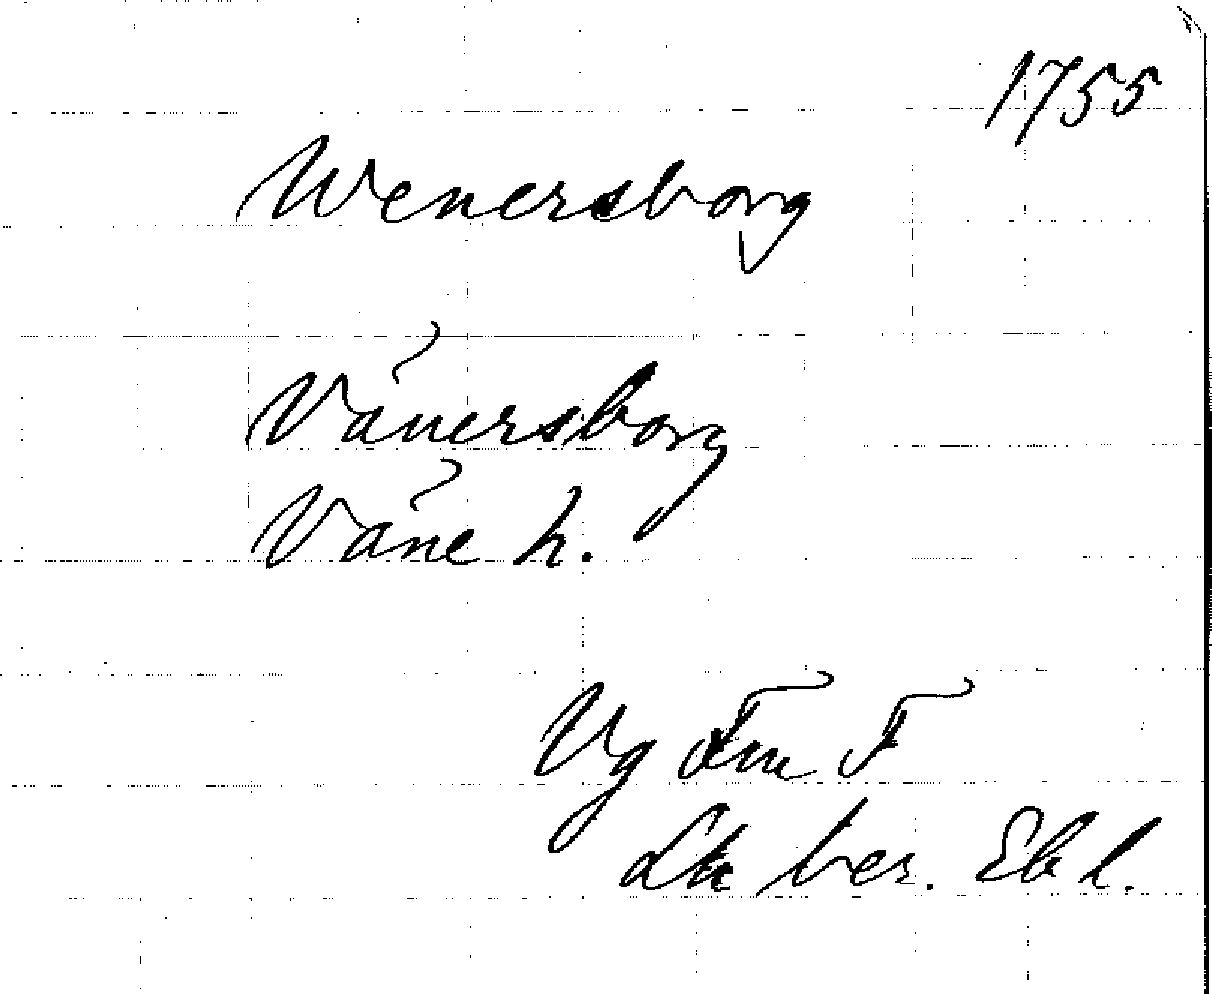 1755
Wenersborg
Vänersborg
Väne h.
Vg Fm F
ber. Ebl.